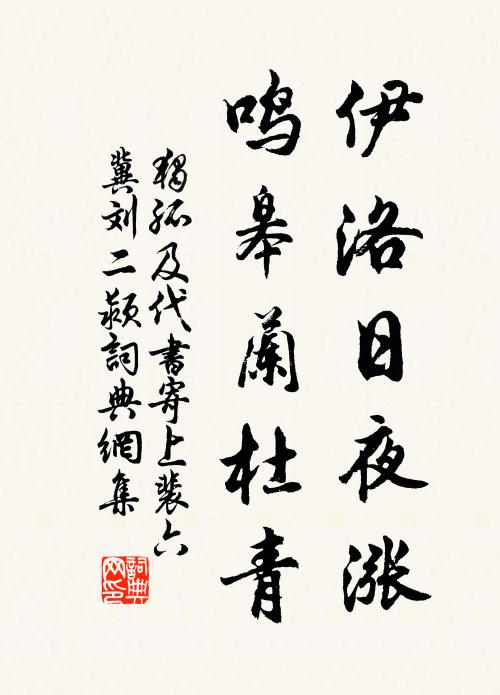 伊洛日夜漲
鸣皋蘭杜青
獨孤及代書寄上裴六
冀刘二颍詞典網集
詞典网印